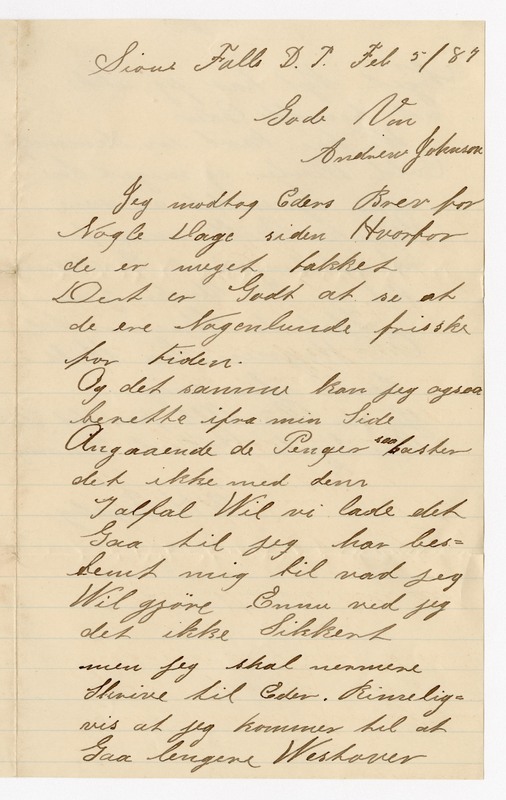 Sioux Falls D. T. Feb 5/87
Gode Ven
Andrew Johnson
Jeg modtog Eders Brev for
Nogle Dage siden Hvorfor
de er meget takket
Dert er Godt at se at
de ere Nogenlunde friske
for tiden.
Og det samme kan jeg ogsaa
berette ifra min Side
Angaaende de Penger saa haster
det ikke med dem
Ialfal Wil vi lade det
Gaa til jeg har bes=
temt mig til vad jeg
Wil gjöre Ennu ved jeg
det ikke Sikkert
men jeg skal nermere
Skrive til Eder. Rimelig=
vis at jeg kommer til at
Gaa lengere Westover